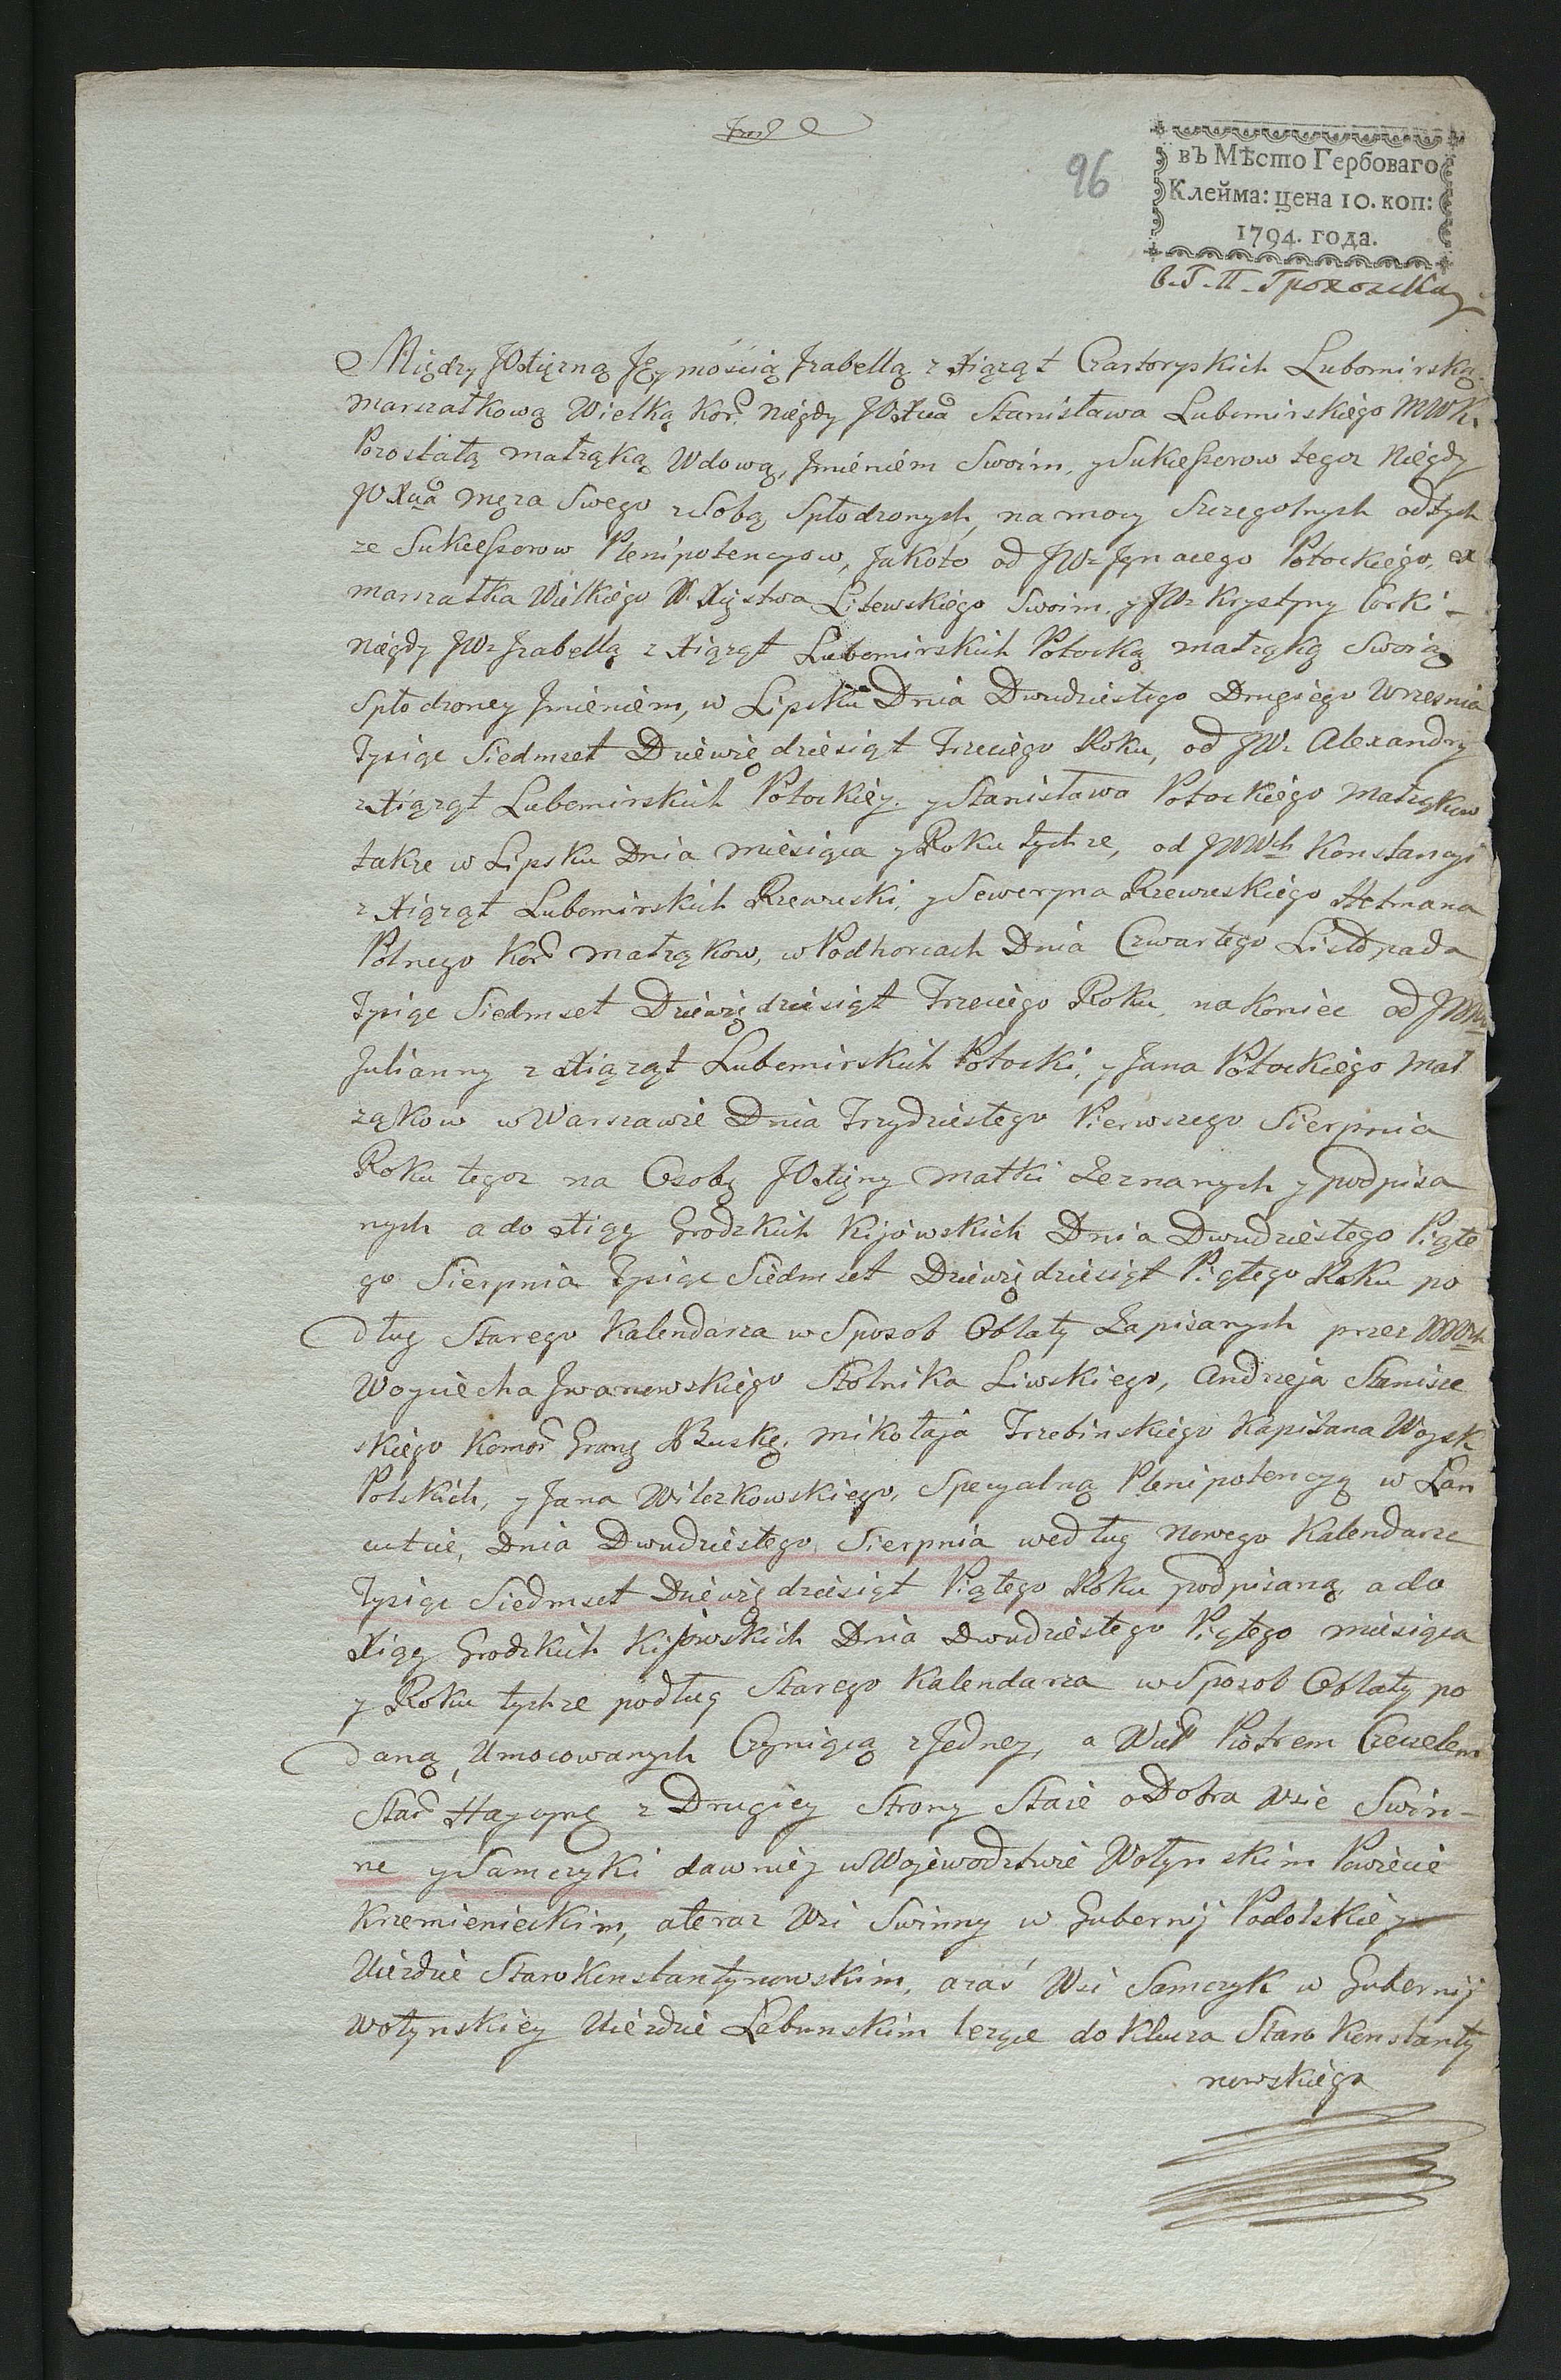 96
въ Мѣсто Гербоваго
Клейма: цена 10. коп:
1794. года.
Między JOXiężną Jeymością Jzabellą z Xiążąt Czartoryskich Lubomirską
marszałkową Wielką Kor. Niegdy JOXcia Stanisława Lubomirskiego MWK.
Pozostałą małżąką Wdową, Jmieniem Swoim, y Sukceßorow tegoż Niegdy
JOXcia męża Swego z Sobą Spłodzonych, na mocy Szczegolnych od tych
że Sukceßorow Plenipotencyow, Jakoto od JWo Jgnacego Potockiego, ex
marszałka Wielkiego W. Xięstwa Litewskiego Swoim, y JWo Krystyny Corki
Niegdy JWo Jzabellą z Xiążąt Lubomirskich Potocką małżąką Swoią
Spłodzoney Jmieniem, w Lipsku Dnia Dwudziestego Drugiego Wrzesnia
Tysiąc Siedmset Dziewiędziesiąt Trzeciego Roku, od JWo Alexandry
z Xiążąt Lubomirskich Potockiey, y Stanisława Potockiego Małżąkow
także w Lipsku Dnia miesiąca y Roku tychże, od JWWch Konstancyi
z Xiążąt Lubomirskich Rzewuski, y Seweryna Rzewuskiego Hetmana
Polnego Kor małżąkow, w Podhorcach Dnia Czwartego Listopada
Tysiąc Siedmset Dziewiędziesiąt Trzeciego Roku, nakoniec od JWW
Julianny z Xiążąt Lubomirskich Potocki, y Jana Potockiego mał
żąkow w Warszawie Dnia Trzydziestego Pierwszego Sierpnia
Roku tegoż na Osobę JOXiężny Matki Zeznanych y podpisa
nych a do Xiąg Grodzkich Kijowskich Dnia Dwudziestego Piąte
go Sierpnia Tysiąc Siedmset Dziewiędziesiąt Piątego Roku po
dług Starego Kalendarza w Sposob Oblaty Zapisanych przez WWch
Woyciecha Jwanowskiego Stolnika Liwskiego, Andrzeja Stanisze
skiego Komor Gran Buskę, mikołaja Trzebinskiego Kapitana Woysk
Polskich, y Jana Wilczkowskiego, Specyalną Plenipotencyą w Łan
cucie, Dnia Dwudziestego Sierpnia według Nowego Kalendarza
Tysiąc Siedmset Dziewiędziesiąt Piątego Roku podpisaną, a do
Xiąg Grodzkich Kijowskich Dnia Dwudziestego Piątego miesiąca
y Roku tychże podług Starego Kalendarza w Sposob Oblaty po
daną, Umocowanych Czyniącą z Jedney, a Wm Piotrem Czeczelem
Star z Drugiey Strony Staie o Dobra Wsie Swin-
ne y Samczyki dawniey w Wojewodztwie Wołynskim Powiecie
Krzemienieckim, a teraz Wsi Swinny w Gubernij Podolskiey
Uiezdzie Staro Konstantynowskim, oraś Wsi Samczyk w Gubernij
Wołynskiey Uiezdzie Łabunskim leżące do Klucza Staro Konstanty
nowskiego